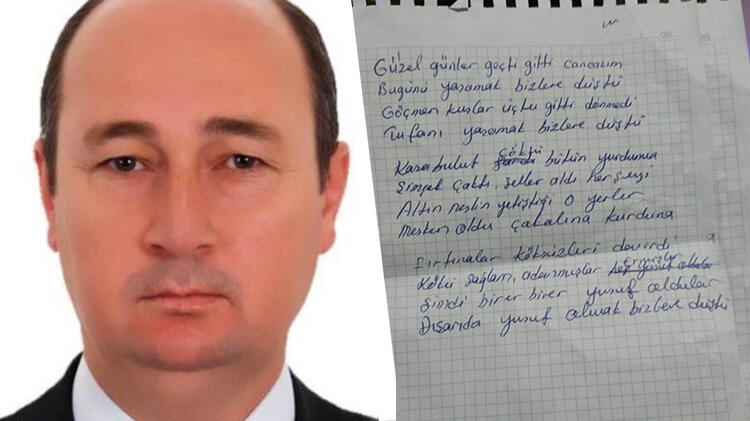 Güzel günler geçti gitti cancazım
Bugünü yaşamak bizlere düştü
Göçmen kuşlar uçtu gitti dönmedi
Tufanı yaşamak bizlere düştü
Karabulut çöktü bütün yurduma
Şimşek çaktı, seller aldı herşeyi
Altın neslin yetiştiği o yerler
Mesken oldu çakalına kurduna
Fırtınalar köksüzleri devirdi
Kökü sağlam, adanmışlar
Şimdi birer birer yusuf oldular
Dışarıda yusuf olmak bizlere düştü